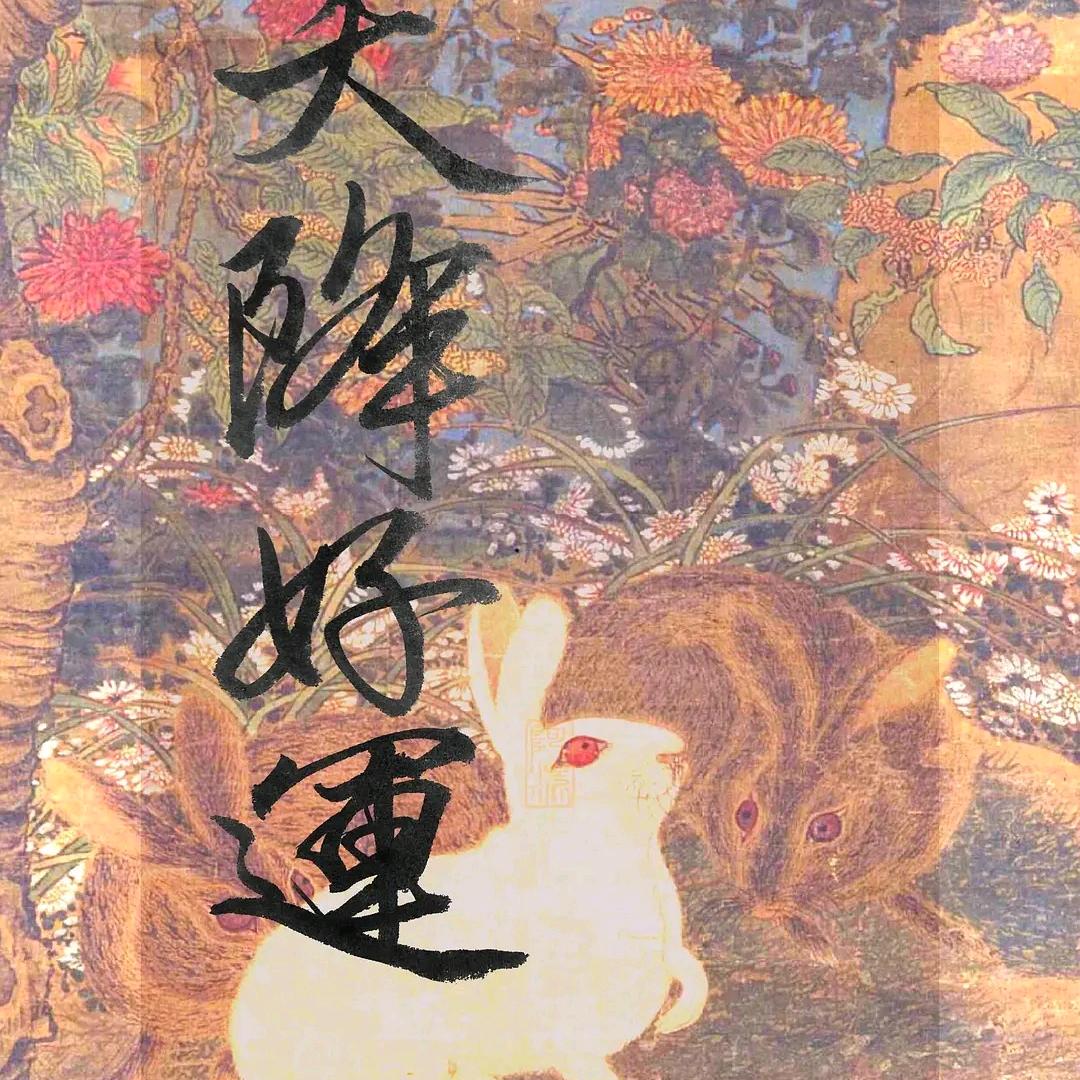 天降好運